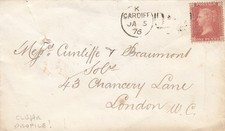 K
CARDIFF
JA 5
76
Messrs Cunliffe & Beaumont
Solrs
43 Chancery Lane
London W.C.